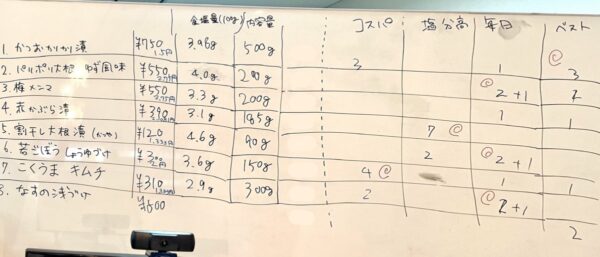 食塩量(100g) 内容量 コスパ 塩分高 毎日 ベスト
1. かつおかりかり漬 ¥750 1.5円 3.96g 500g
3 1 3
2. パリポリ大根 ゆず風味 ¥550 4.0g
2+1 1
3. 梅メンマ ¥550 2.75円 3.3g 200g
1 1
4. 赤かぶら漬 ¥390 3.1g 185g
7
5. 割干し大根漬 ¥120 4.6g 90g
2 2+1
6. 若ごぼう しょうゆづけ 3.6g 150g
4 1 1
7. こくうま キムチ ¥310 2.9g 300g
2 2+1
8. なすの浅づけ ¥600
2